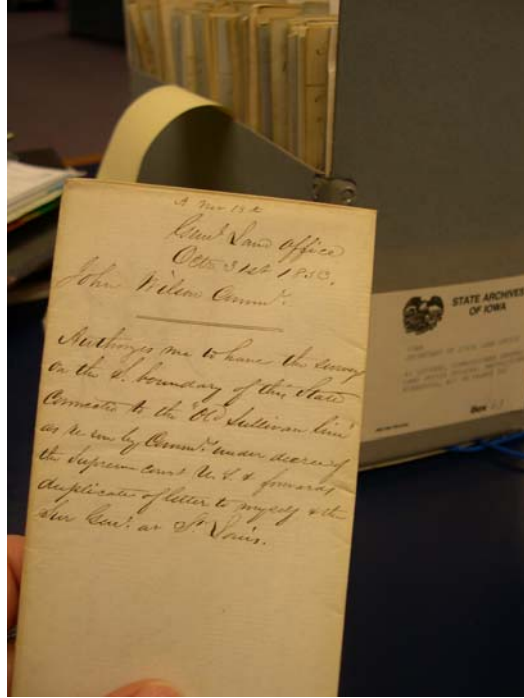 A Nov 13th
Genl Land Office
Octo 31st 1853.
John Wilson Commr.
Authorizes me to have the survey
on the S. boundary of this State
Connected to the "Old Sullivan line"
as re run by Commrs under decree of
the Supreme court U.S. & forwards
duplicate of letter to myself & the
Sur Genl. at St. Louis.
STATE ARCHIVES
OF IOWA
Box